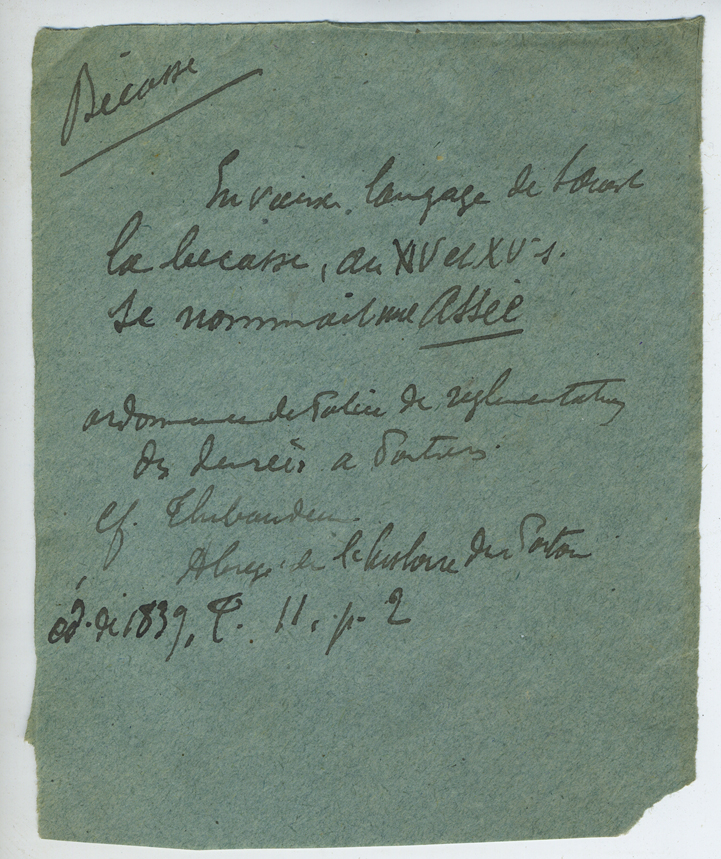 Bécasse
En vieux langage de
la becasse, au XIV et XV s.
se nommait une Assée
ordonnance de Police de réglementation
des denrées a Poitiers
cf. Thibaudeau
Abrégé de l'histoire du Poitou
éd. de 1839, T. II, p. 2